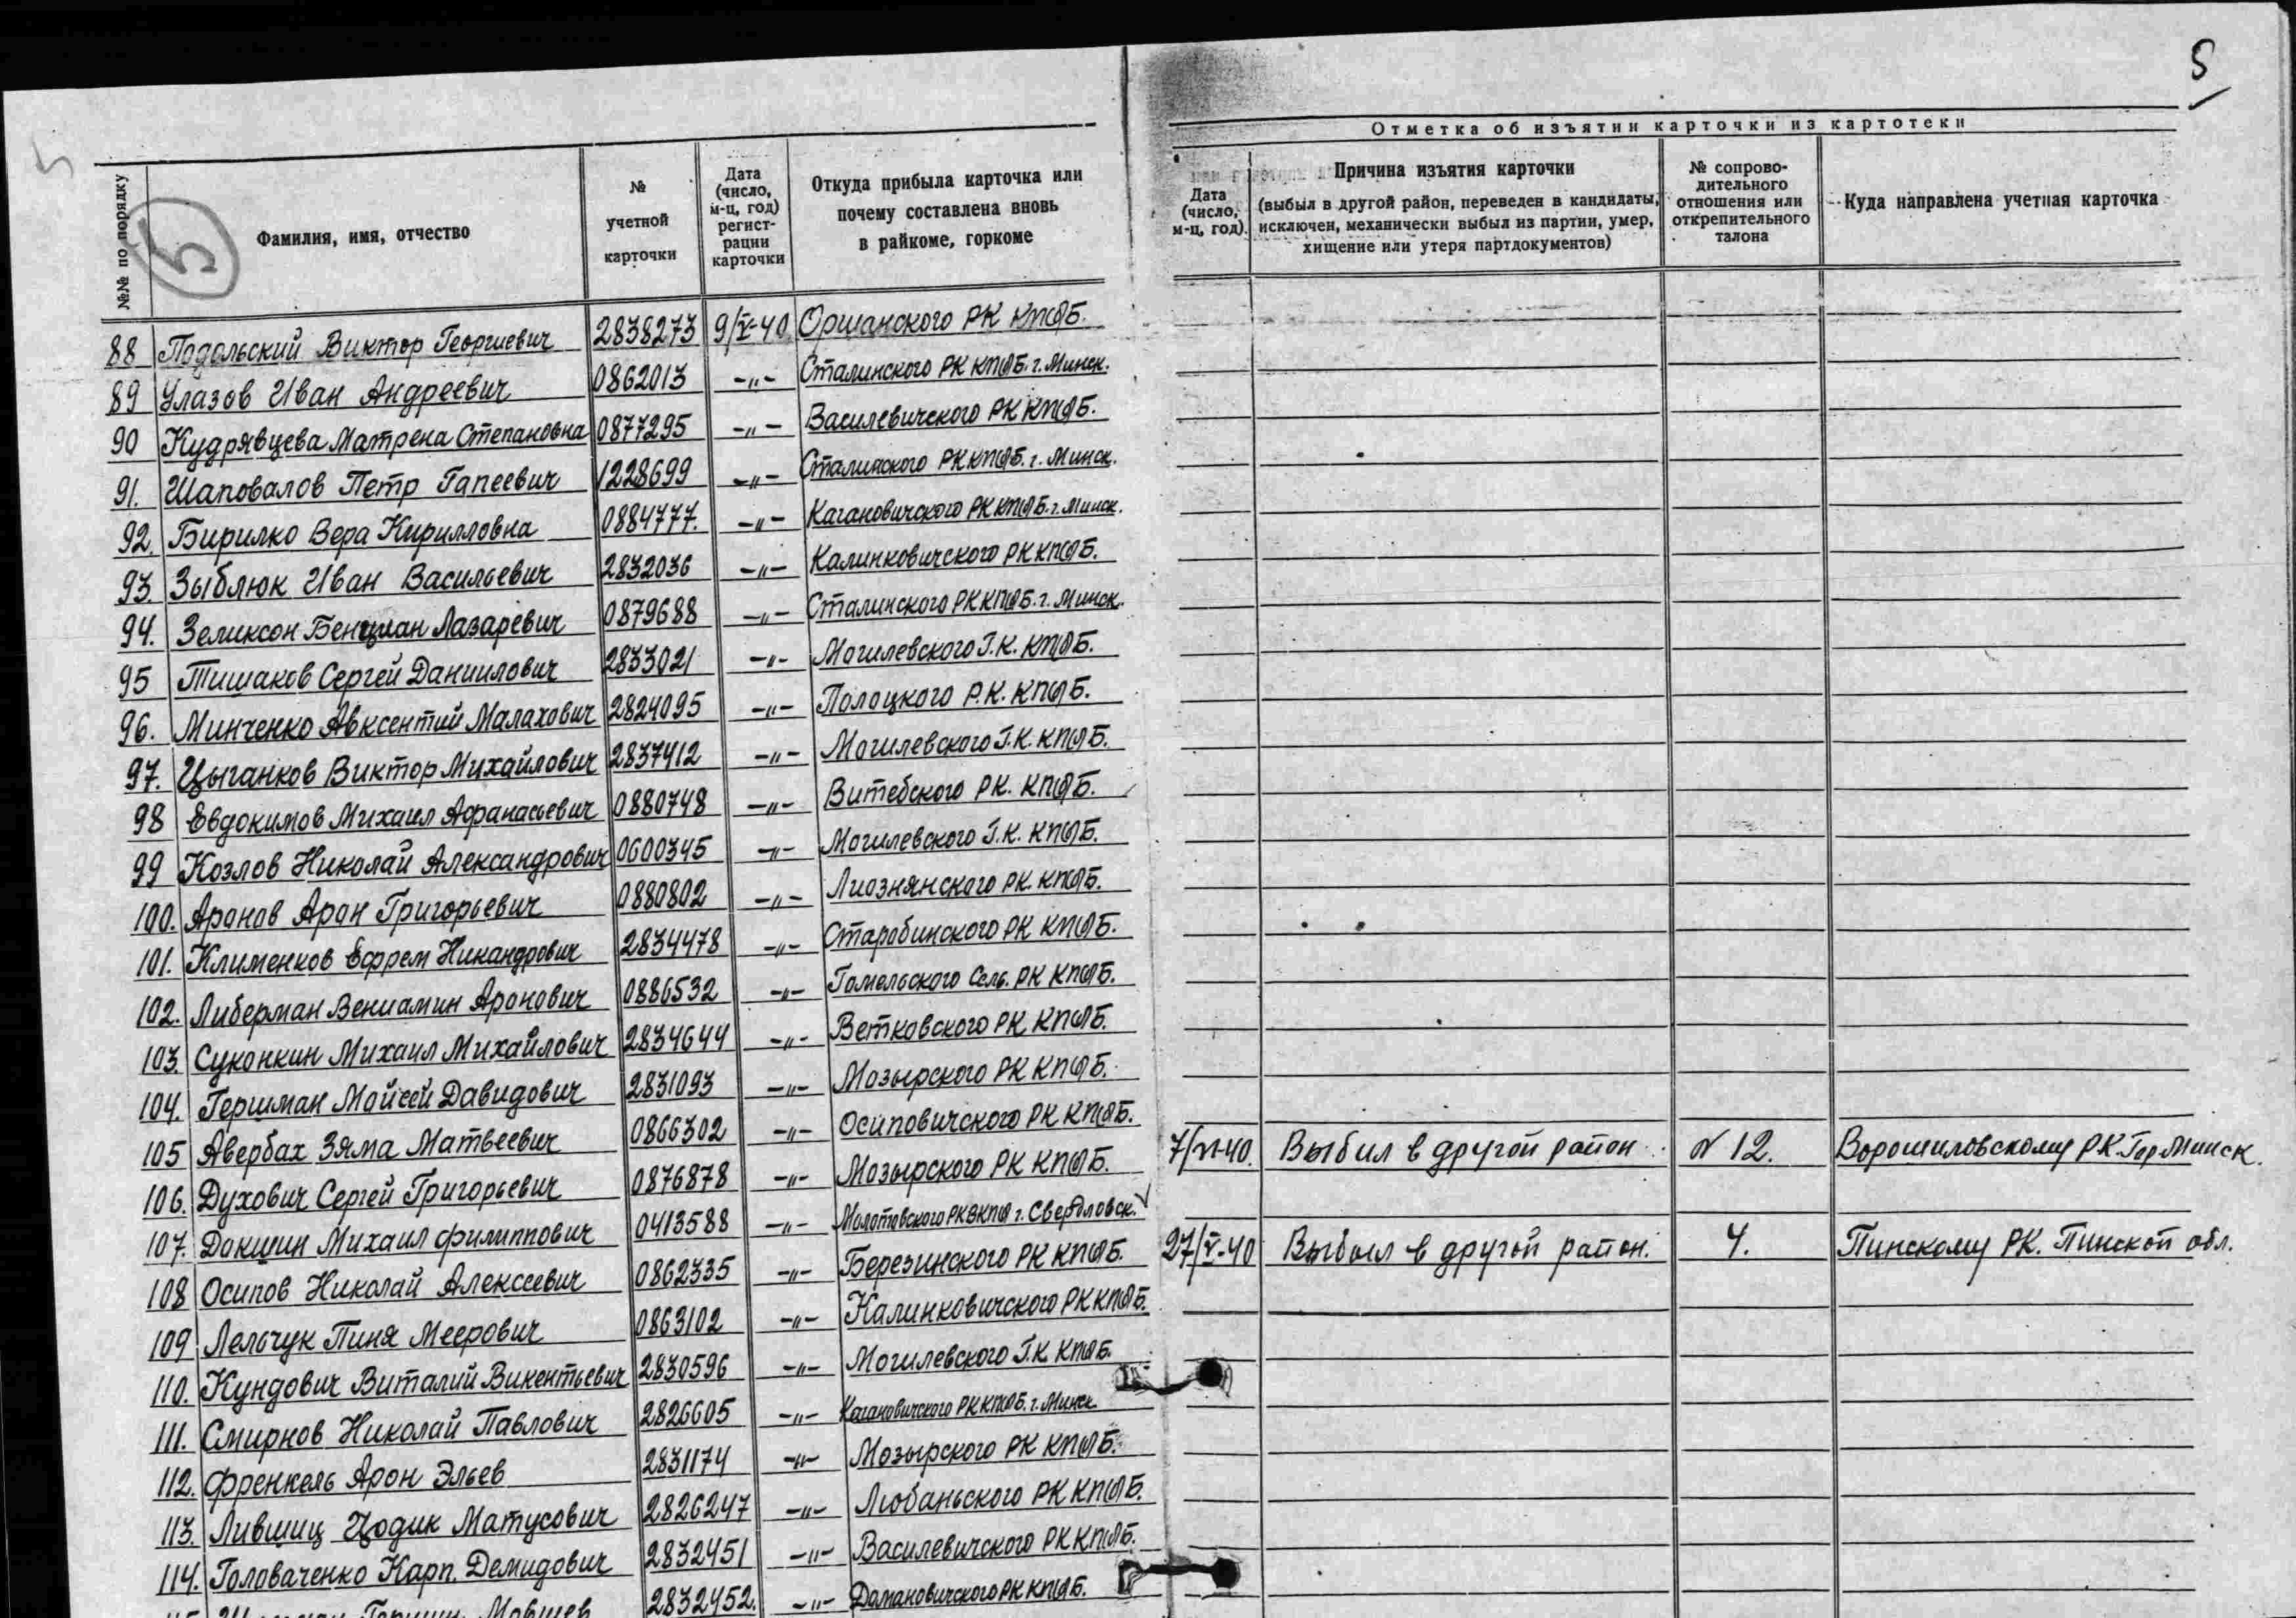 5
5
5
Отметка об изъятии карточки из картотеки
№№ по порядку
Фамилия, имя, отчество
№ учетной карточки
Дата (число, м-ц, год) регистрации карточки
Откуда прибыла карточка или почему составлена вновь в райкоме, горкоме
Дата (число, м-ц, год).
Причина изъятия карточки (выбыл в другой район, переведен в кандидаты, исключен, механически выбыл из партии, умер, хищение или утеря партдокументов)
№ сопроводительного отношения или открепительного талона
Куда направлена учетная карточка
88 Подольский Виктор Георгиевич 2838273 9/V-40 Оршанского РК КП(б)Б.
89 Улазов Иван Андреевич 0862013 -"- Сталинского РК КП(б)Б. г. Минск.
90 Кудрявцева Матрена Степановна 0877295 -"- Василевичского РК КП(б)Б.
91. Шаповалов Петр Гапеевич 1228699 -"- Сталинского РК КП(б)Б. г. Минск.
92. Бирилко Вера Кирилловна 0884777. -"- Кагановичского РК КП(б)Б. г. Минск.
93. Зыблюк Иван Васильевич 2832036 -"- Калинковичского РК КП(б)Б.
94. Зеликсон Бенциан Лазаревич 0879688 -"- Сталинского РК КП(б)Б. г. Минск.
95 Тишаков Сергей Даниилович 2833021 -"- Могилевского Г.К. КП(б)Б.
96. Минченко Авксентий Малахович 2824095 -"- Полоцкого Р.К. КП(б)Б.
97. Цыганков Виктор Михайлович 2837412 -"- Могилевского Г.К. КП(б)Б.
98 Евдокимов Михаил Афанасьевич 0880748 -"- Витебского РК. КП(б)Б.
99 Козлов Николай Александрович 0600345 -"- Могилевского Г.К. КП(б)Б.
100. Аронов Арон Григорьевич 0880802 -"- Лиознянского РК. КП(б)Б.
101. Клименков Ефрем Никандрович 2834478 -"- Старобинского РК КП(б)Б.
102. Либерман Вениамин Аронович 0886532 -"- Гомельского Сель. РК КП(б)Б.
103. Суконкин Михаил Михайлович 2834644 -"- Ветковского РК КП(б)Б.
104. Гершман Мойсей Давидович 2831093 -"- Мозырского РК КП(б)Б.
105 Авербах Зяма Матвеевич 0866302 -"- Осиповичского РК КП(б)Б.
106. Духович Сергей Григорьевич 0876878 -"- Мозырского РК КП(б)Б. 7/VI-40. Выбил в другой район. № 12. Ворошиловскому РК. Гор. Минск.
107. Докшин Михаил Филиппович 0413588 -"- Молотовского РК ВКП(б) г. Свердловск.
108 Осипов Николай Алексеевич 0862335 -"- Березинского РК КП(б)Б. 27/V-40 Выбыл в другой район. 4. Пинскому РК. Пинской обл.
109 Лельчук Пиня Меерович 0863102 -"- Калинковичского РК КП(б)Б.
110. Кундович Виталий Викентьевич 2830596 -"- Могилевского Г.К. КП(б)Б.
111. Смирнов Николай Павлович 2826605 -"- Кагановичского РК КП(б)Б. г. Минск
112. Френкель Арон Эльев 2831174 -"- Мозырского РК КП(б)Б.
113. Лившиц Цодик Матусович 2826247 -"- Любаньского РК КП(б)Б.
114. Головаченко Карп. Демидович 2832451 -"- Василевичского РК КП(б)Б.
2832452. -"- Домановичского РК КП(б)Б.